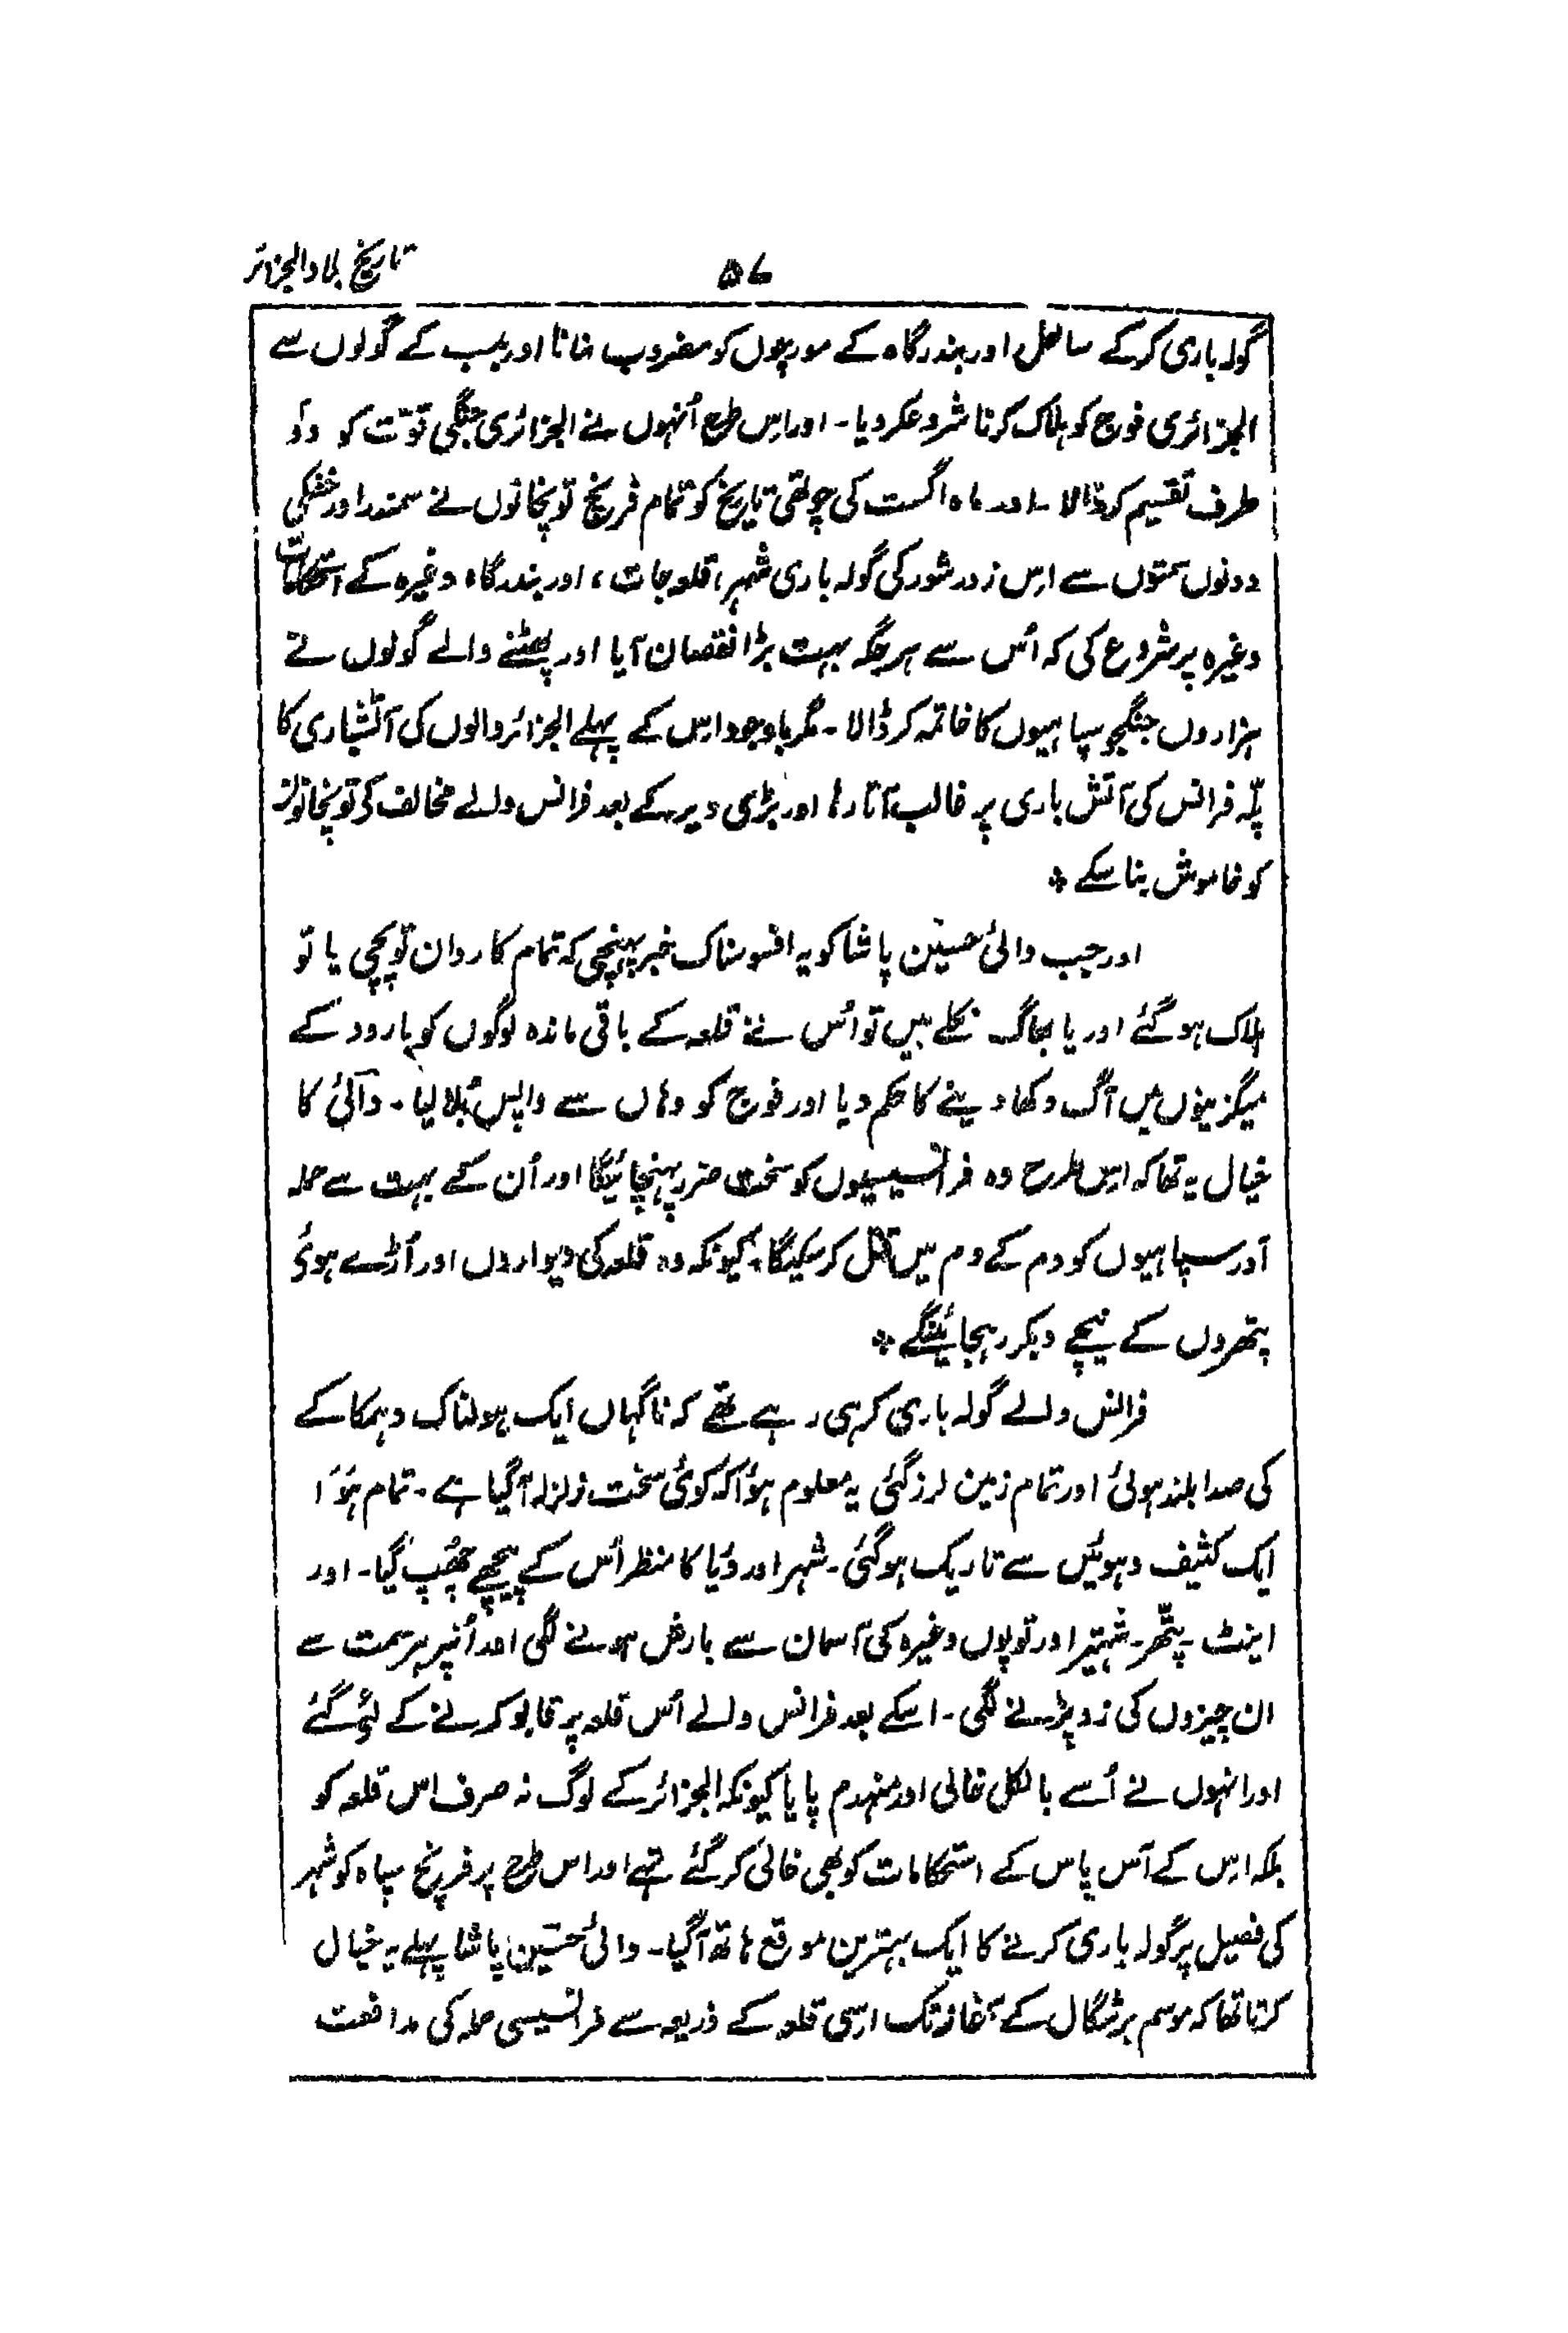 تاریخ بلاد الجزائر
۵۷
گولہ باری کرکے ساحل اور بندرگاہ کے مورچوں کو مضروب بنانا اور بمب کے گولوں سے
الجزائری فوج کو ہلاک کرنا شروعکردیا۔ اور اِس طرح اُنہوں نے الجزائری جنگی قوّت کو دوُ
طرف تقسیم کرڈالا۔ اور ماہ اگست کی چوتھی تاریخ کو تمام فرینچ توپخانوں نے سمندر اور خشکی
دونوں سمتوں سے اِس زور شور کی گولہ باری شہر، قلعہ جات، اور بندرگاہ وغیرہ کے استحکامات
وغیرہ پر شروع کی کہ اُس سے ہر جگہ بہت بڑا نقصان آیا اور پھٹنے والے گولوں نے
ہزاروں جنگجو سپاہیوں کا خاتمہ کر ڈالا۔ مگر باوجود اِس کے پہلے الجزائر والوں کی آتشباری کا
پلّہ فرانس کی آتش باری پر غالب آتا رہا اور بڑی دیر کے بعد فرانس والے مخالف کی توپخانوں
کو خاموش بنا سکے ٭
اور جب والئ حسین پاشا کو یہ افسوسناک خبر پہنچی کہ تمام کاروان توپچی یا تو
ہلاک ہو گئے اور یا بھاگ نکلے ہیں تو اُس نے قلعہ کے باقی ماندہ لوگوں کو بارود کے
میگزینوں میں آگ دکھا دینے کا حکم دیا اور فوج کو وہاں سے واپس بُلا لیا۔ والئ کا
خیال یہ تھا کہ اِس طرح وہ فرانسیسیوں کو سخت ضرر پہنچائیگا اور اُن کے بہت سے حملہ
آور سپاہیوں کو دم کے دم میں قتل کر سکیگا۔ کیونکہ وہ قلعہ کی دیواروں اور اُڑے ہوئے
پتھروں کے نیچے دبکر رہجائینگے ٭
فرانس والے گولہ باری کر ہی رہے تھے کہ ناگہاں ایک ہولناک دہمکا کے
کی صدا بلند ہوئی اور تمام زمین لرز گئی یہ معلوم ہؤا کہ کوئی سخت زلزلہ آگیا ہے۔ تمام ہَوَا
ایک کثیف دہوئیں سے تاریک ہو گئی۔ شہر اور دُنیا کا منظر اُس کے پیچھے چھُپ گیا۔ اور
اینٹ۔ پتّھر۔ شہتیر اور توپوں وغیرہ کی آسمان سے بارش ہونے لگی اور اُنپر ہر سمت سے
ان چیزوں کی زد پڑنے لگی۔ اسکے بعد فرانس والے اُس قلعہ پر قابو کرنے کے لئے گئے
اور انہوں نے اُسے بالکل خالی اور منہدم پایا کیونکہ الجزائر کے لوگ نہ صرف اس قلعہ کو
بلکہ اِس کے آس پاس کے استحکامات کو بھی خالی کر گئے تہے اور اس طرح پر فرینچ سپاہ کو شہر
کی فصیل پر گولہ باری کرنے کا ایک بہترین موقع ہاتھ آگیا۔ والئ حسین پاشا پہلے یہ خیال
کرتا تھا کہ موسم برشگال کے آغاز تک اِسی قلعہ کے ذریعہ سے فرانسیسی حملہ کی مدافعت